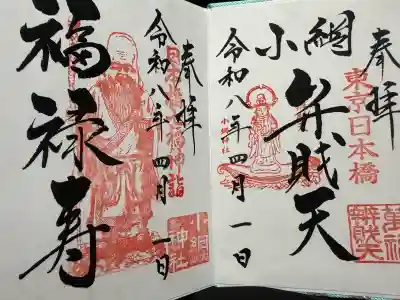 奉拝
東京日本橋
小網
弁財天
小網神社
令和八年四月一日
萬福
辨財天
奉拝
日本橋七福神詣
令和八年四月一日
福禄寿
小網
神社